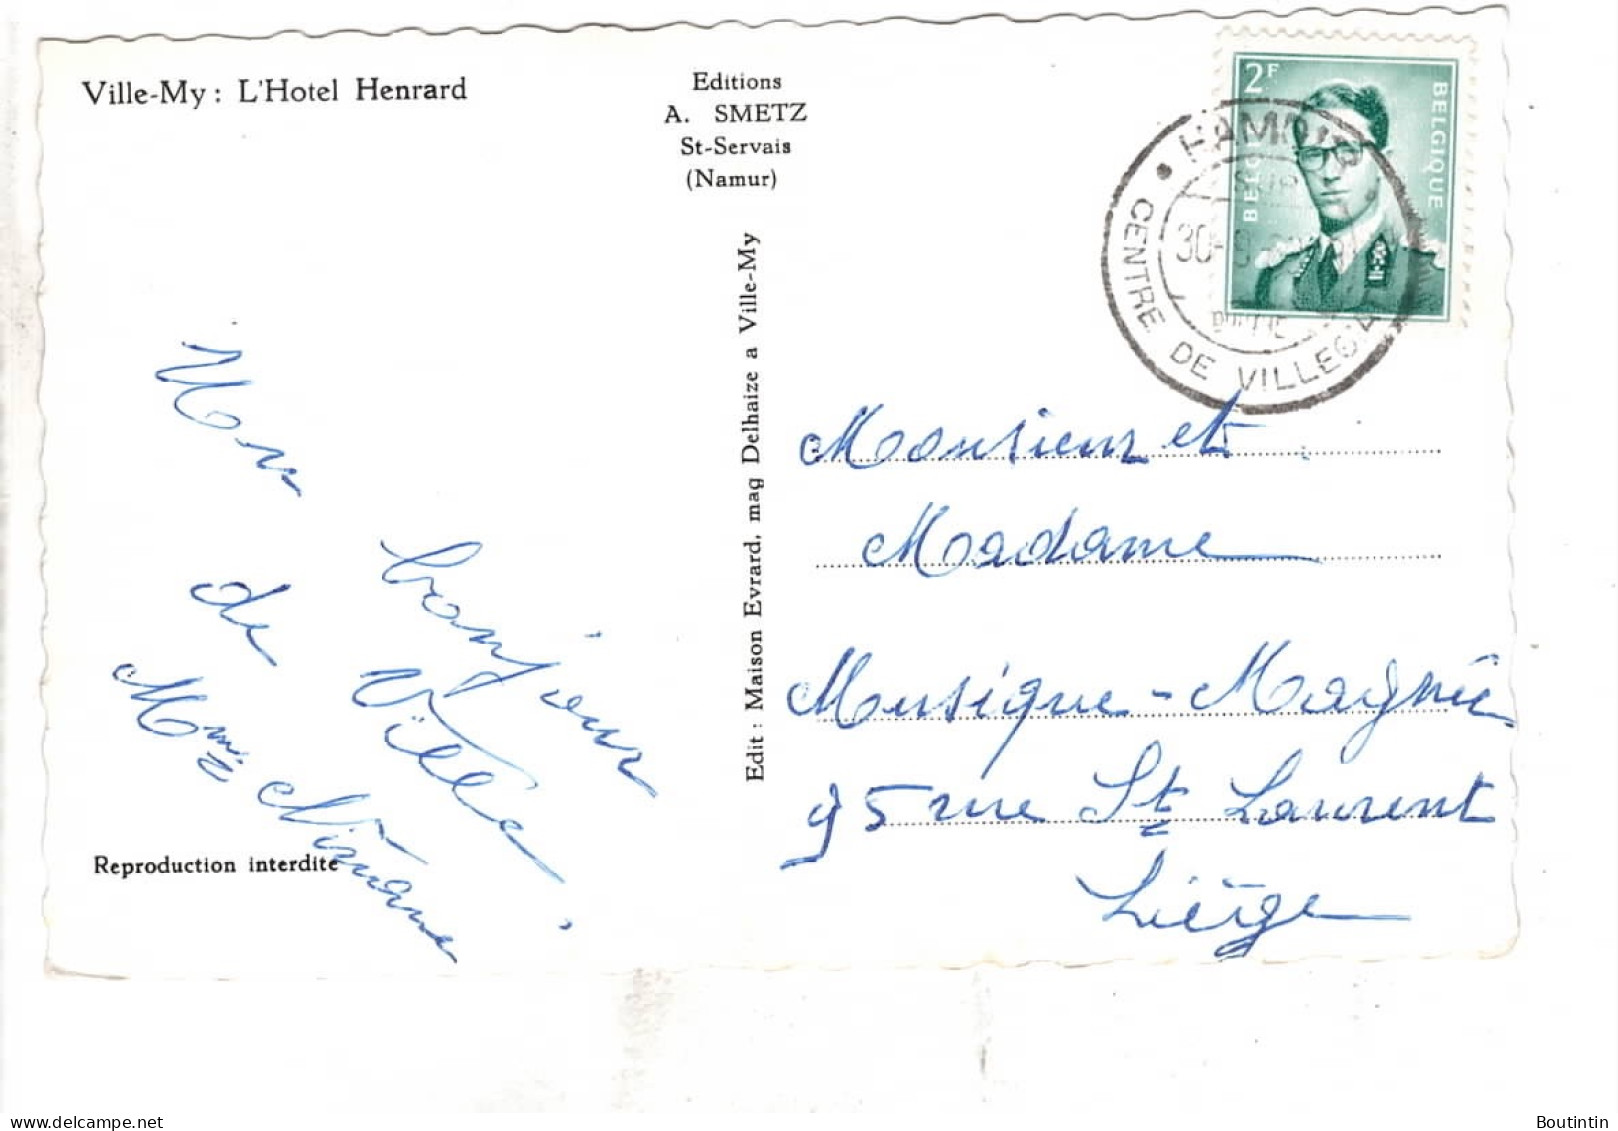 Ville-My : L'Hotel Henrard
Editions
A. SMETZ
St-Servais
(Namur)
2F
BELGIQUE
BELGIË
HAMOIR
30-
CENTRE DE VILLEGIA
Edit : Maison Evrard, mag Delhaize a Ville-My
Mon
bonjour
de Ville
Mme
Reproduction interdite
Monsieur et
Madame
Musique-Magnée
95 rue St Laurent
Liège
Boutintin